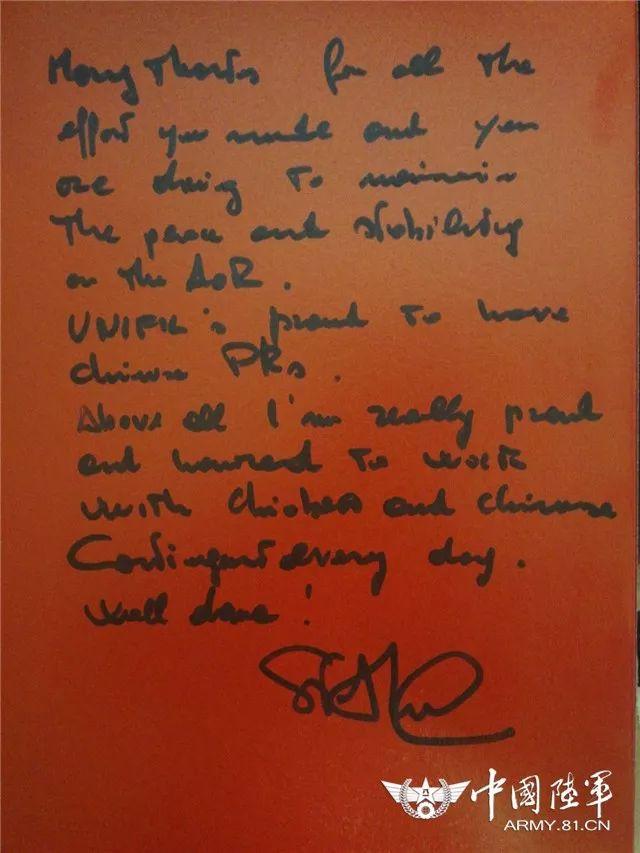 Many Thanks for all the
effort you made and you
are doing to maintain
the peace and stability
on the AoR.
UNIFIL's proud to have
chinese PKs.
Above all I'm really proud
and honored to work
with and chinese
Contingent every day.
Well done!
中國陸軍
ARMY.81.CN